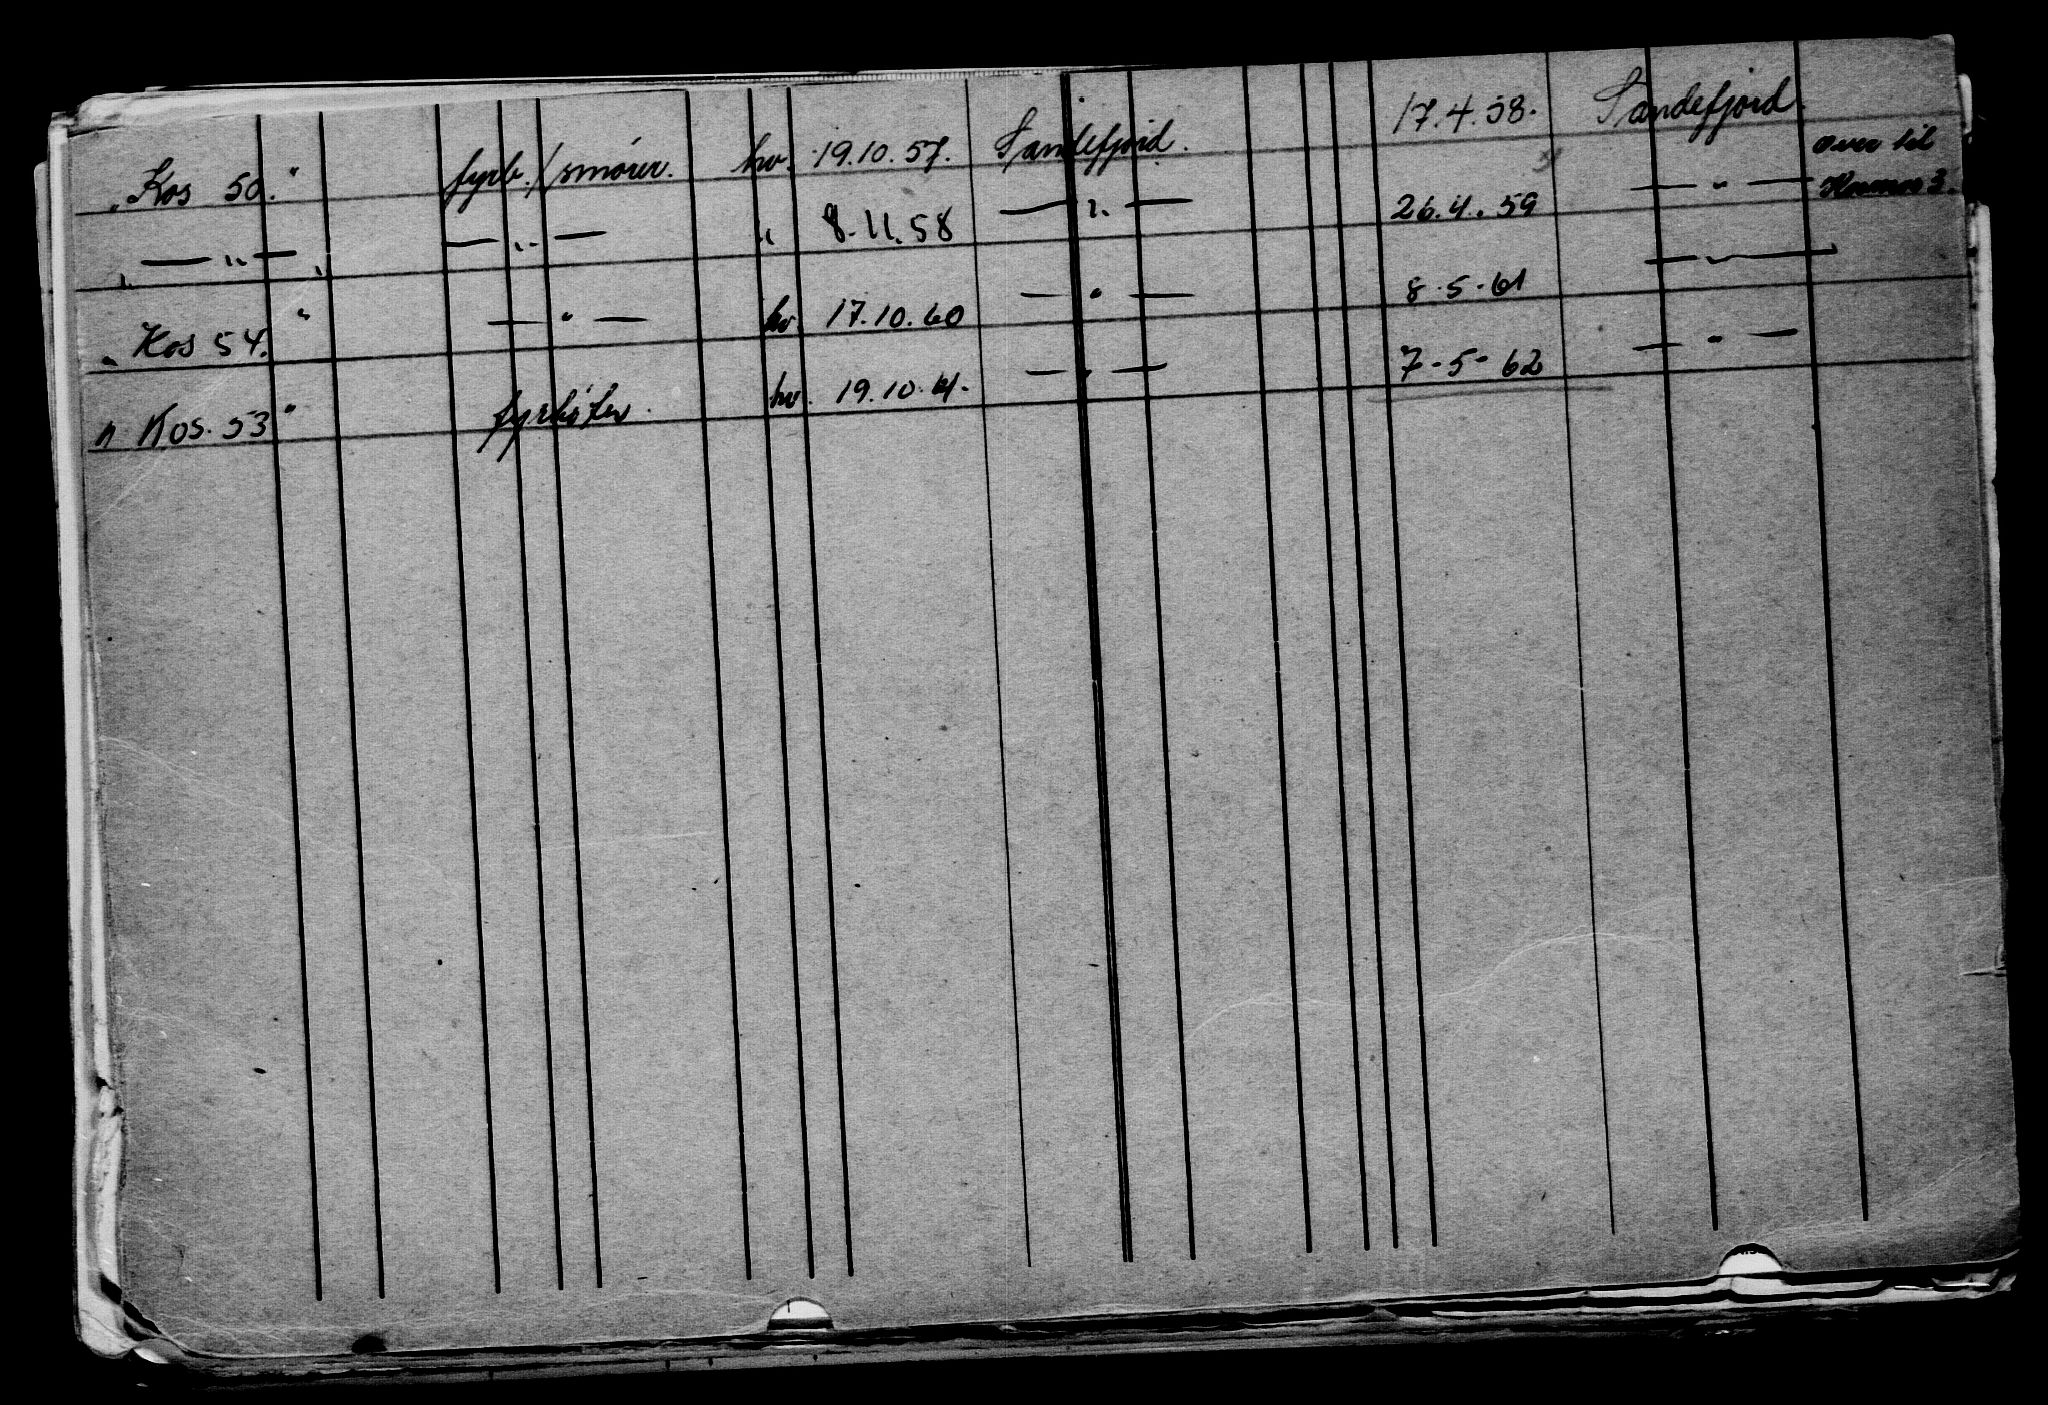 „Kos 50.“ fyrb./smører. hv. 19.10.57. Sandefjord. 17.4.58. Sandefjord. Over til Kosmos 3.
„ — „ — “ — „ — “ 8.11.58 — „ — 26.4.59 — „ —
„Kos 54.“ — „ — hv. 17.10.60 — „ — 8-5-61 — „ —
„Kos. 53“ fyrbøter. hv. 19.10. — „ — 7-5-62 — „ —